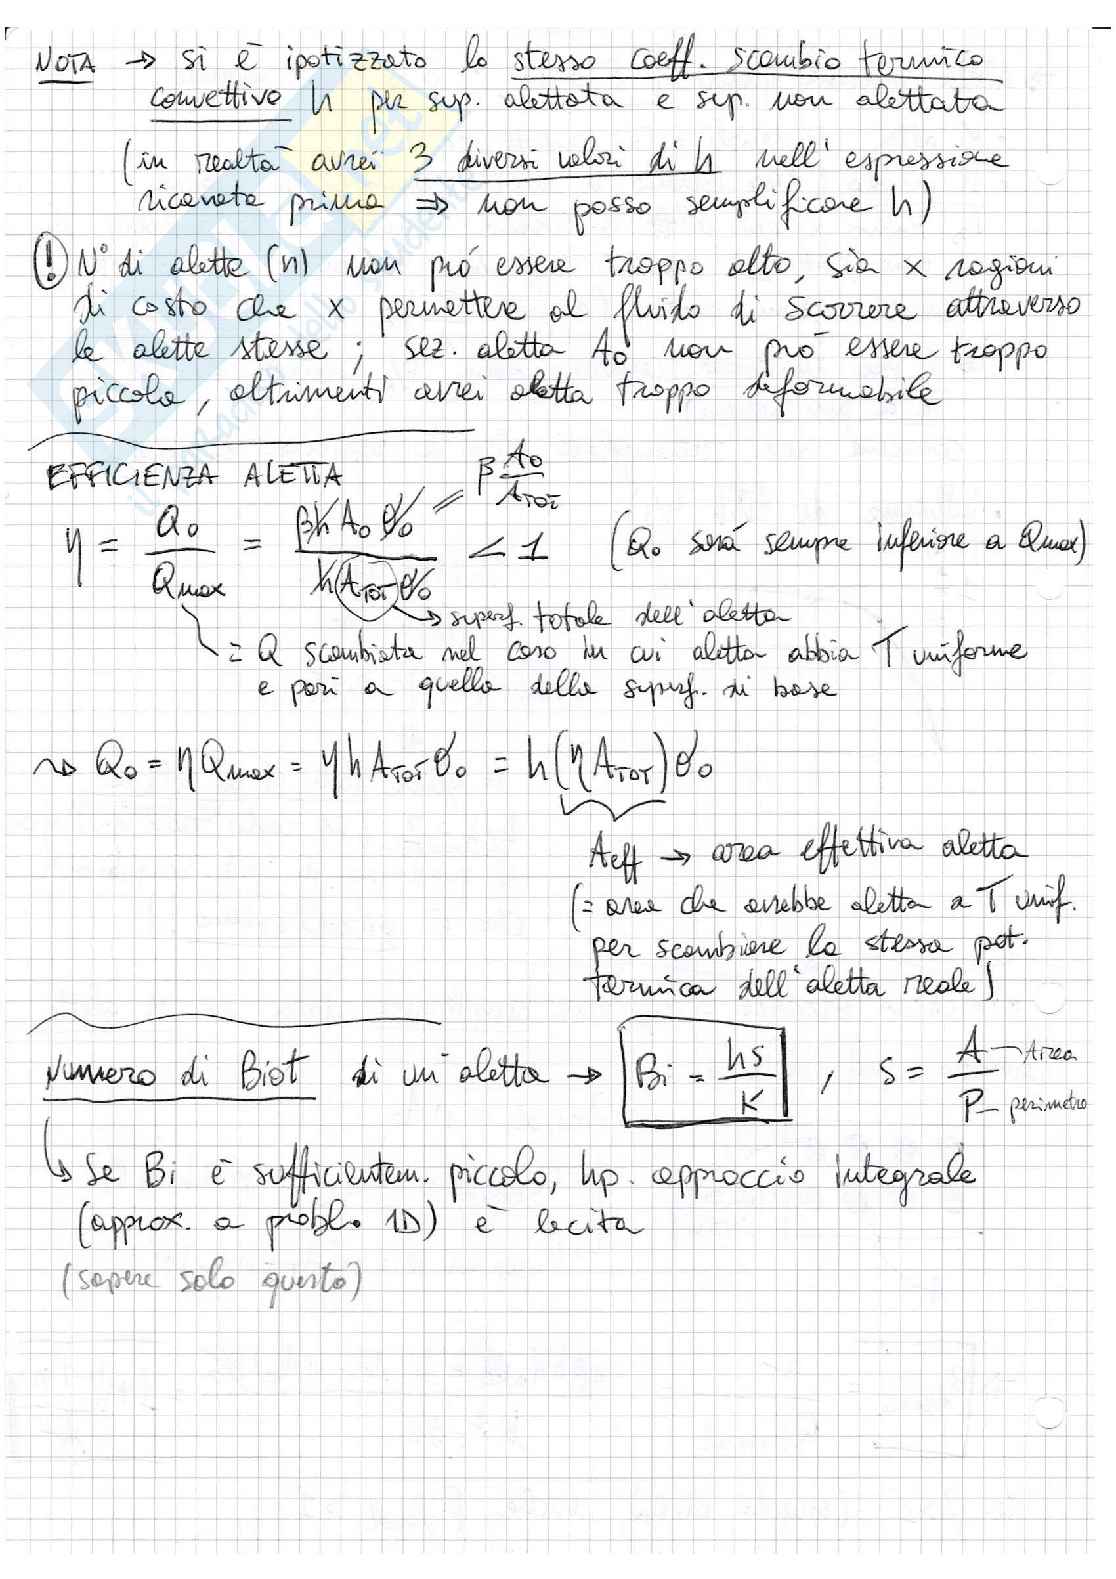 NOTA → si è ipotizzato lo stesso coeff. scambio termico
convettivo h per sup. alettata e sup. non alettata
(in realtà avrei 3 diversi valori di h nell'espressione
ricavata prima ⇒ non posso semplificare h)
(!) N° di alette (n) non può essere troppo alto, sia x ragioni
di costo che x permettere al fluido di scorrere attraverso
le alette stesse ; sez. aletta A₀ non può essere troppo
piccola, altrimenti avrei aletta troppo deformabile
EFFICIENZA ALETTA
η = Q₀ / Qmax = βhA₀θ₀ / hA_TOTθ₀ = β A₀ / A_TOT < 1 (Q₀ sarà sempre inferiore a Qmax)
→ superf. totale dell'aletta
= Q scambiata nel caso in cui aletta abbia T uniforme
e pari a quella della superf. di base
⇝ Q₀ = ηQmax = ηhA_TOTθ₀ = h(ηA_TOT)θ₀
Aeff → area effettiva aletta
(= area che avrebbe aletta a T unif.
per scambiare la stessa pot.
termica dell'aletta reale)
Numero di Biot di un'aletta → Bi = hs / K , s = A / P
Area
perimetro
↳ Se Bi è sufficientem. piccolo, hp. approccio integrale
(approx. a probl. 1D) è lecita
(sapere solo questo)